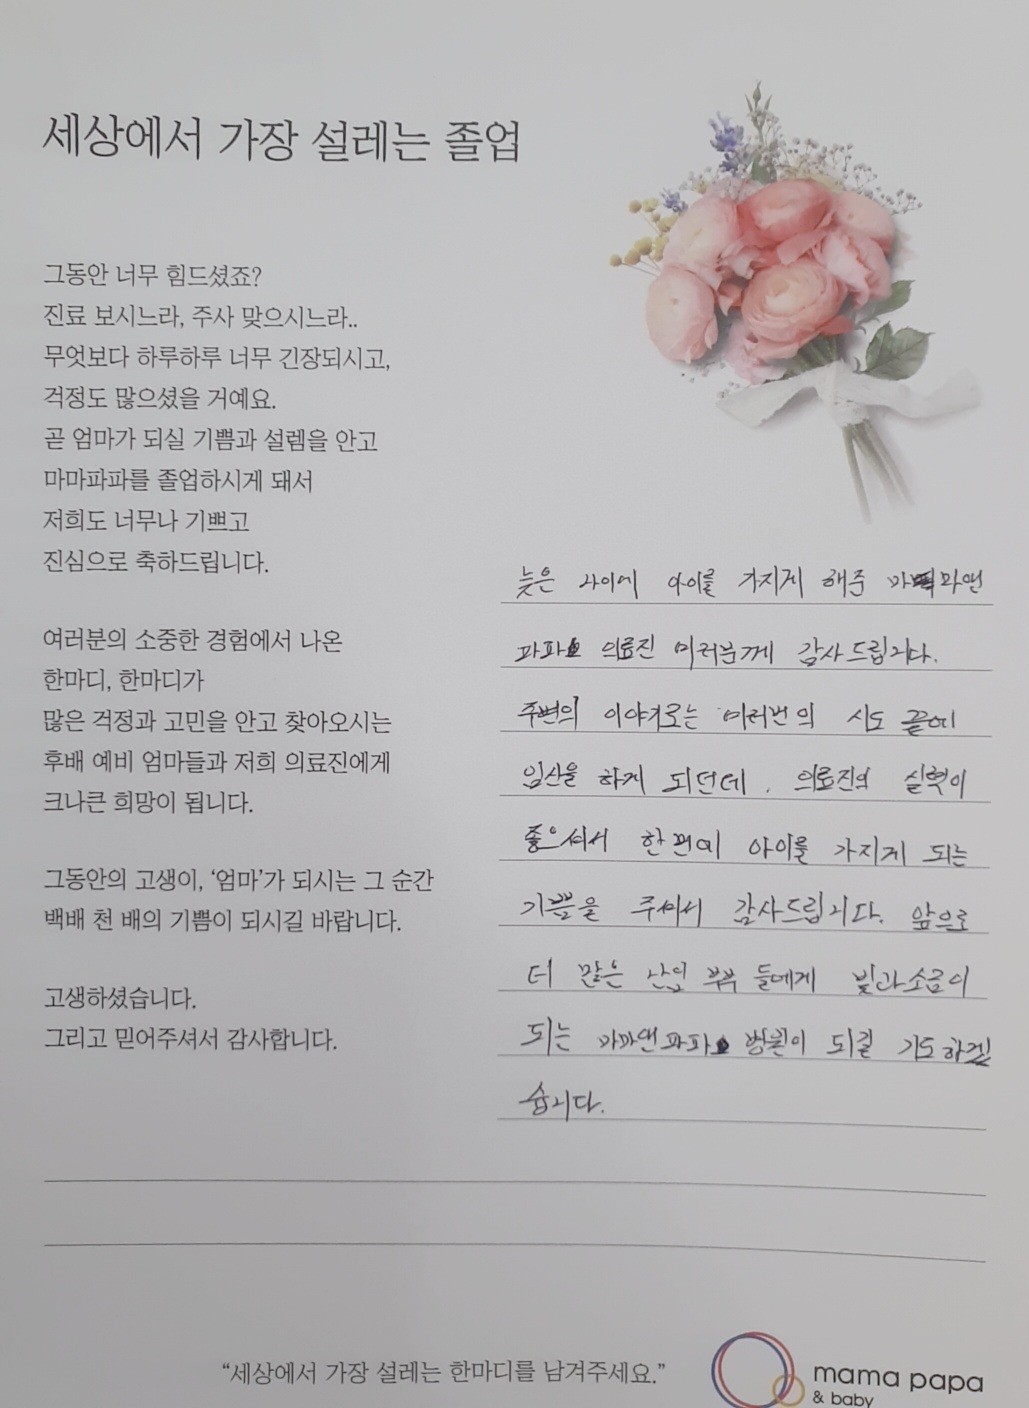 세상에서 가장 설레는 졸업
그동안 너무 힘드셨죠?
진료 보시느라, 주사 맞으시느라..
무엇보다 하루하루 너무 긴장되시고,
걱정도 많으셨을 거예요.
곧 엄마가 되실 기쁨과 설렘을 안고
마마파파를 졸업하시게 돼서
저희도 너무나 기쁘고
진심으로 축하드립니다.
여러분의 소중한 경험에서 나온
한마디, 한마디가
많은 걱정과 고민을 안고 찾아오시는
후배 예비 엄마들과 저희 의료진에게
크나큰 희망이 됩니다.
그동안의 고생이, ‘엄마’가 되시는 그 순간
백배 천 배의 기쁨이 되시길 바랍니다.
고생하셨습니다.
그리고 믿어주셔서 감사합니다.
늦은 나이에 아이를 가지게 해준 마마앤
파파 의료진 여러분께 감사드립니다.
주변의 이야기로는 여러번의 시도 끝에
임신을 하게 되던데, 의료진의 실력이
좋으셔서 한번에 아이를 가지게 되는
기쁨을 주셔서 감사드립니다. 앞으로
더 많은 난임 부부들에게 빛과소금이
되는 마마앤파파 병원이 되길 기도하겠
습니다.
“세상에서 가장 설레는 한마디를 남겨주세요.”
mama papa
& baby